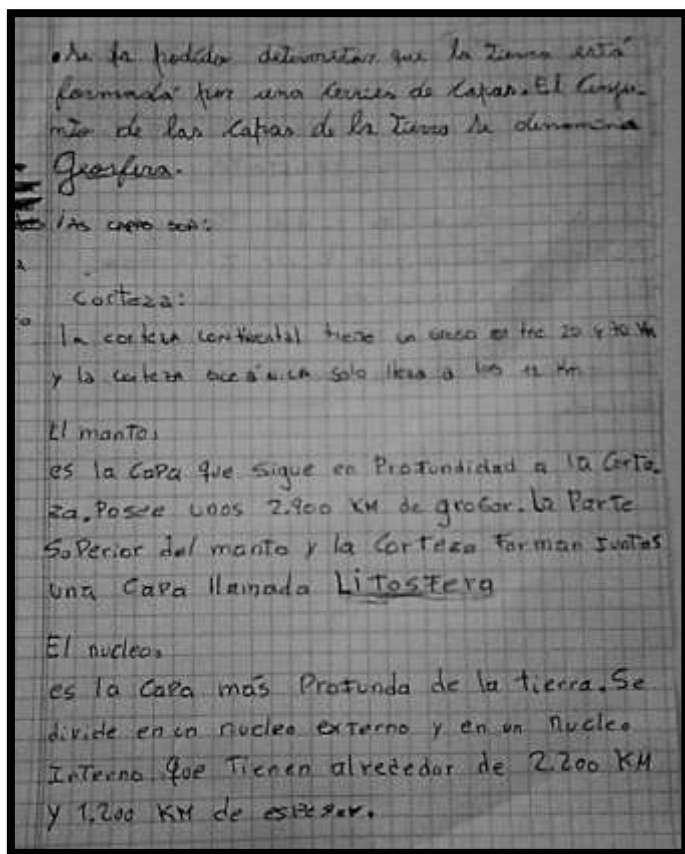 • Se ha podido determinar que la Tierra está
formada por una serries de capas. El Conju-
nto de las capas de la Tierra se denomina
Geosfera.
LAS CAPAS SON:
Corteza:
La corteza continental tiene un entre 20 y 70 Km
y la corteza oceánica solo llega a los 12 Km
El manto:
es la capa que sigue en Profundidad a la Corte-
za. Posee unos 2.900 KM de grosor. La Parte
Superior del manto y la Corteza Forman Juntas
una Capa llamada Litosfera
El nucleo:
es la Capa más Profunda de la tierra. Se
divide en un nucleo externo y en un nucleo
Interno que Tienen alrededor de 2.200 KM
y 1.200 KM de espesor.